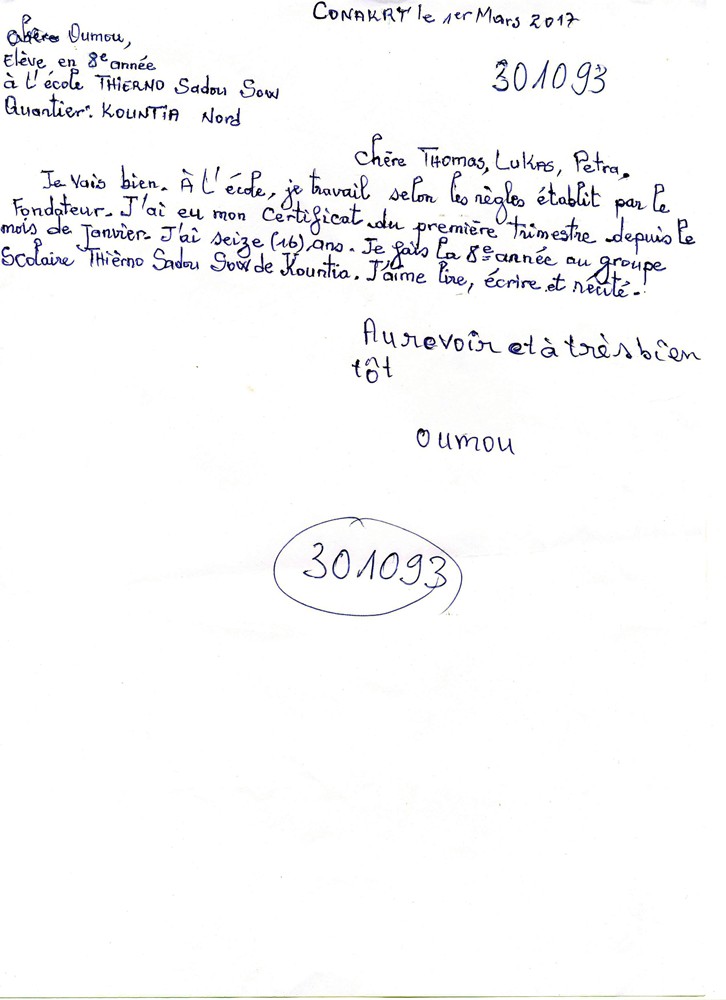 CONAKRY le 1er Mars 2017
Oumou,
Elève en 8e année
à l'école THIERNO Sadou Sow
Quartier: KOUNTIA Nord
301093
Chère THOMAS, LUKAS, Petra.
Je vais bien. À l'école, je travail selon les règles établit par le
Fondateur. J'ai eu mon certificat du première trimestre depuis le
mois de Janvier. J'ai seize (16) ans. Je fais la 8e année au groupe
Scolaire Thièrno Sadou Sow de Kountia. J'aime lire, écrire et récité.
Au revoir et à très bien
tôt
oumou
301093